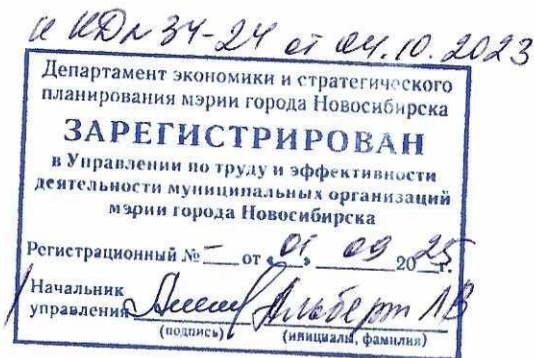 к КД № 34-24 от 04.10.2023
Департамент экономики и стратегического
планирования мэрии города Новосибирска
ЗАРЕГИСТРИРОВАН
в Управлении по труду и эффективности
деятельности муниципальных организаций
мэрии города Новосибирска
Регистрационный № – от « 01 » 09 20 25 г.
Начальник
управления Альберт ЛВ
(подпись) (инициалы, фамилия)